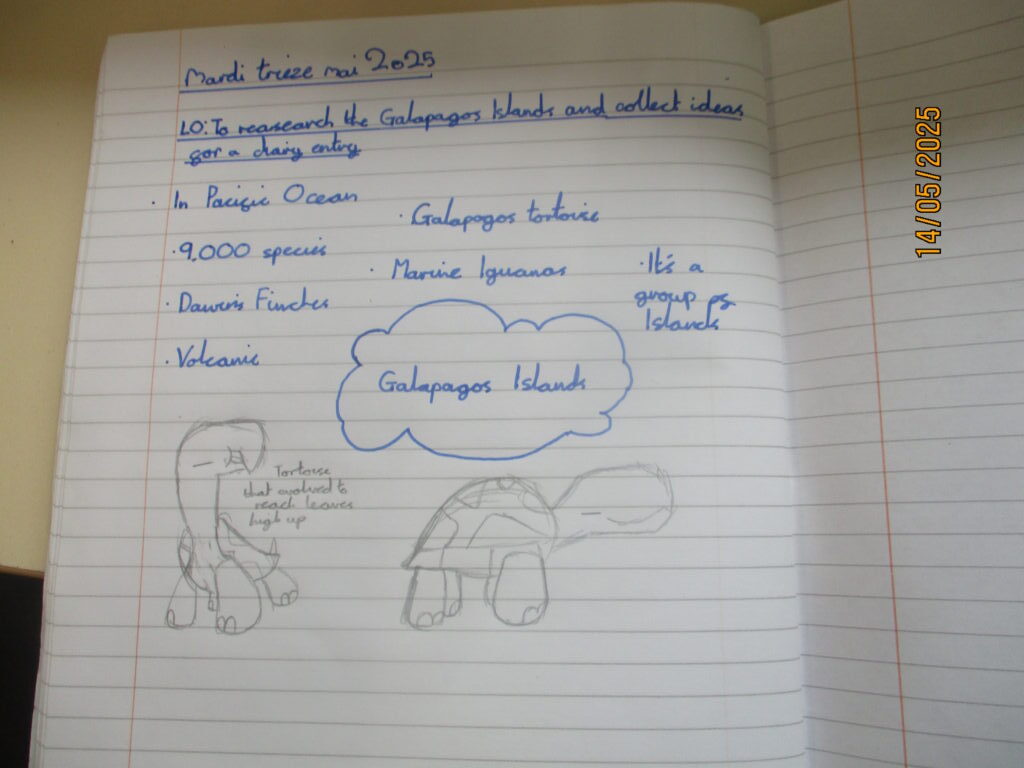 Mardi trieze mai 2025
LO: To reasearch the Galapagos Islands and collect ideas
for a diary entry
· In Pacific Ocean
· Galapagos tortoise
· 9,000 species
· Marine Iguanas
· It's a
group of
Islands
· Dawin's Finches
· Volcanic
Galapagos Islands
Tortoise
that evolved to
reach leaves
high up
14/05/2025